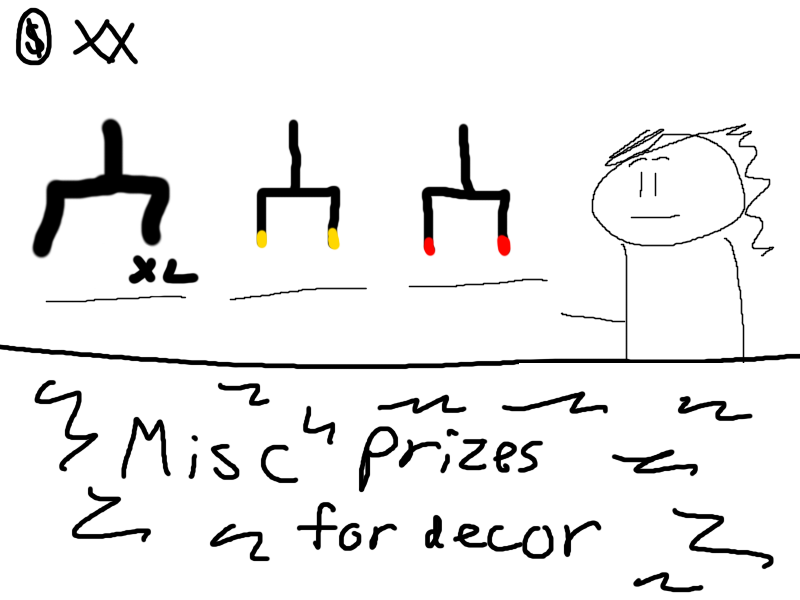 $ XX
XL
Misc Prizes
for decor